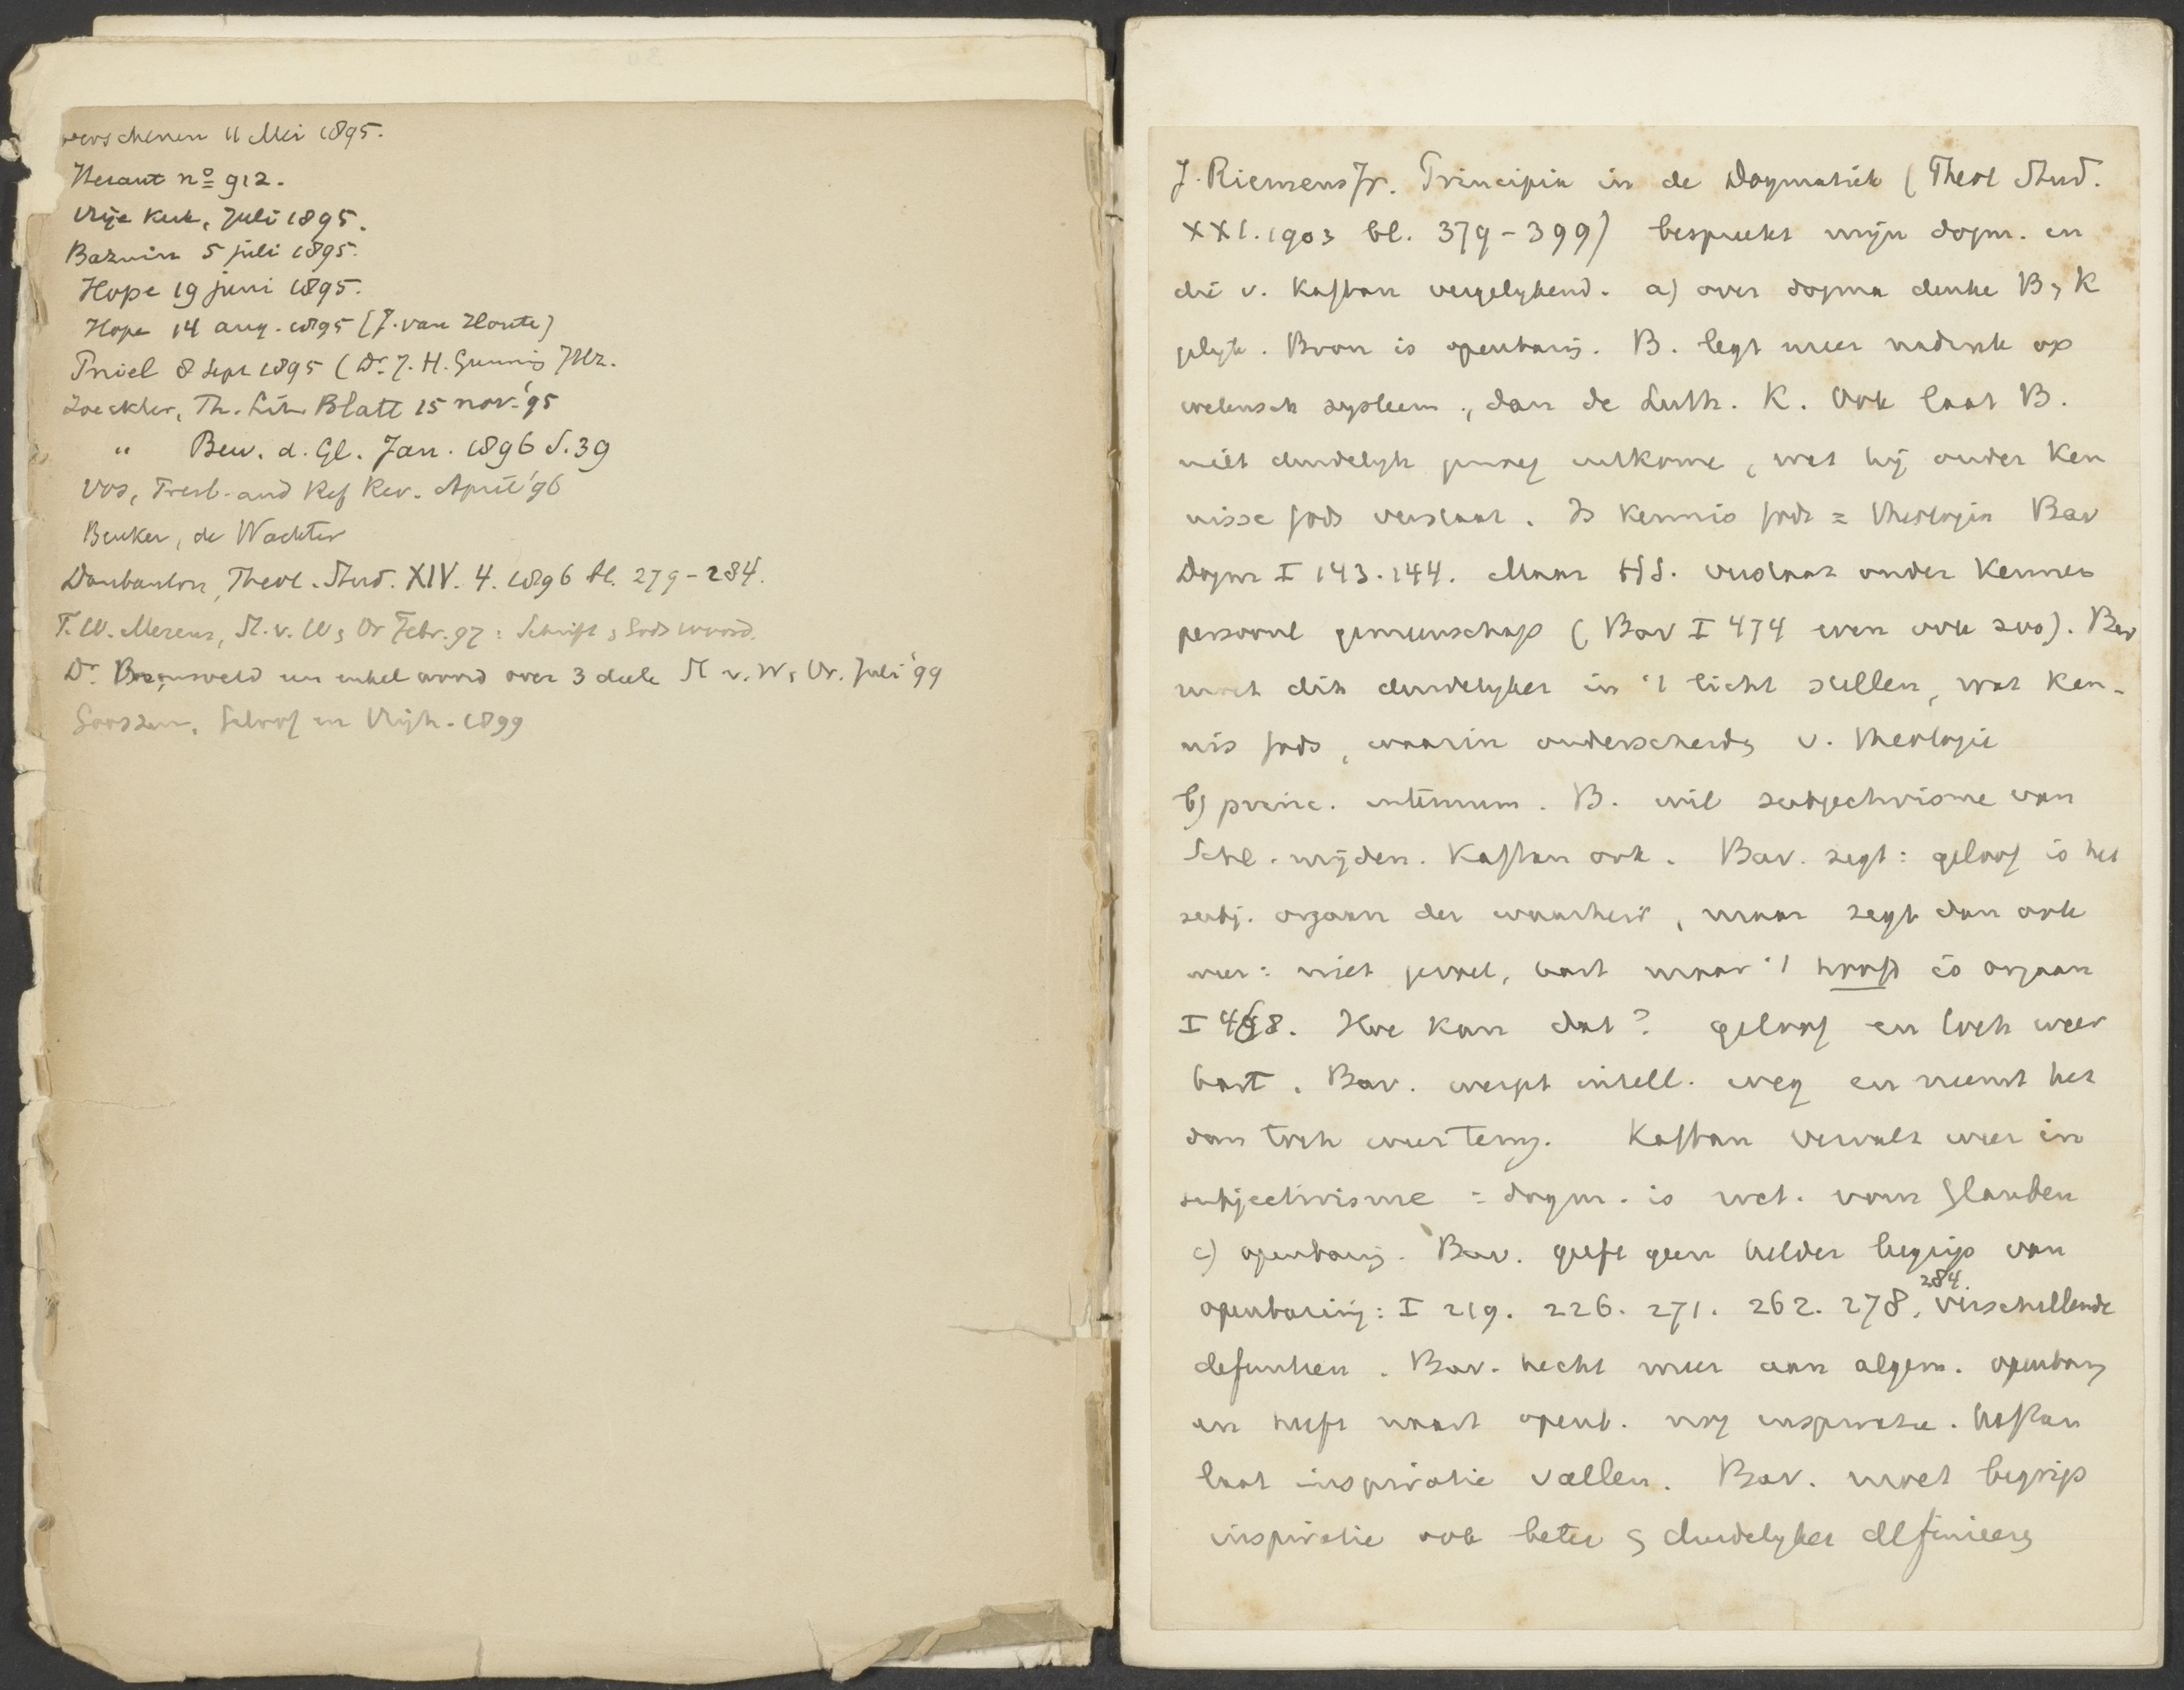 verschenen 11 Mei 1895.
Heraut no 912.
Vrije Kerk, Juli 1895.
Bazuin 5 juli 1895.
Hope 19 juni 1895.
Hope 14 aug. 1895 (J. van Houte)
Pniel 8 Sept 1895 (Dr. J. H. Gunning JHz.
Zoeckler, Th. Lit. Blatt 15 nov. '95
" Bew. d. Gl. Jan. 1896 S. 39
Vos, Presb. and Ref Rev. April '96
Beuker, de Wachter
Daubanton, Theol. Stud. XIV. 4. 1896 bl. 279-284.
T. W. Merens, St. v. W. en Vr Febr. 97: Schrift en Gods woord.
Dr. Bronsveld een enkel woord over 3 deele St v. W. en Vr. Juli '99
Gooszen, Geloof en Vrijh. 1899
J. Riemens Jr. Principia in de Dogmatiek (Theol Stud.
XXI. 1903 bl. 379-399) bespreekt mijn dogm. en
die v. Kaftan vergelijkend. a) over dogma denke B en K
gelijk. Bron is openbaring. B. legt meer nadruk op
wetensch systeem, dan de Luth. K. Ook laat B.
niet duidelijk genoeg uitkome, wat hij onder ken
nisse Gods verstaat. Is kennis Gods = theologia Bav
Dogm I 143.144. Maar HS. verstaat onder kennen
persoonl gemeenschap (Bav I 474 even ook zoo). Bav
moet dit duidelijker in 't licht stellen, wat ken-
nis Gods, waarin onderscheiden v. theologie
b) princ. internum. B. wil subjectivisme van
Schl. mijden. Kaftan ook. Bav. zegt: geloof is het
subj. orgaan der waarheid, maar zegt dan ook
weer: niet gevoel, hart maar 't hoofd is orgaan
I 468. Hoe kan dat? geloof en toch weer
hart. Bav. werpt intell. weg en neemt het
dan toch weer terug. Kaftan vervalt weer in
subjectivisme = dogm. is wet. vom Glauben
c) openbaring. Bav. geeft geen helder begrip van
openbaring: I 219. 226. 271. 262. 278. 284. verschillende
definities. Bav. hecht meer aan algem. openbaring
en heeft naast openb. nog inspiratie. Kaftan
laat inspiratie vallen. Bav. moet begrip
inspiratie ook beter en duidelijker definieeren